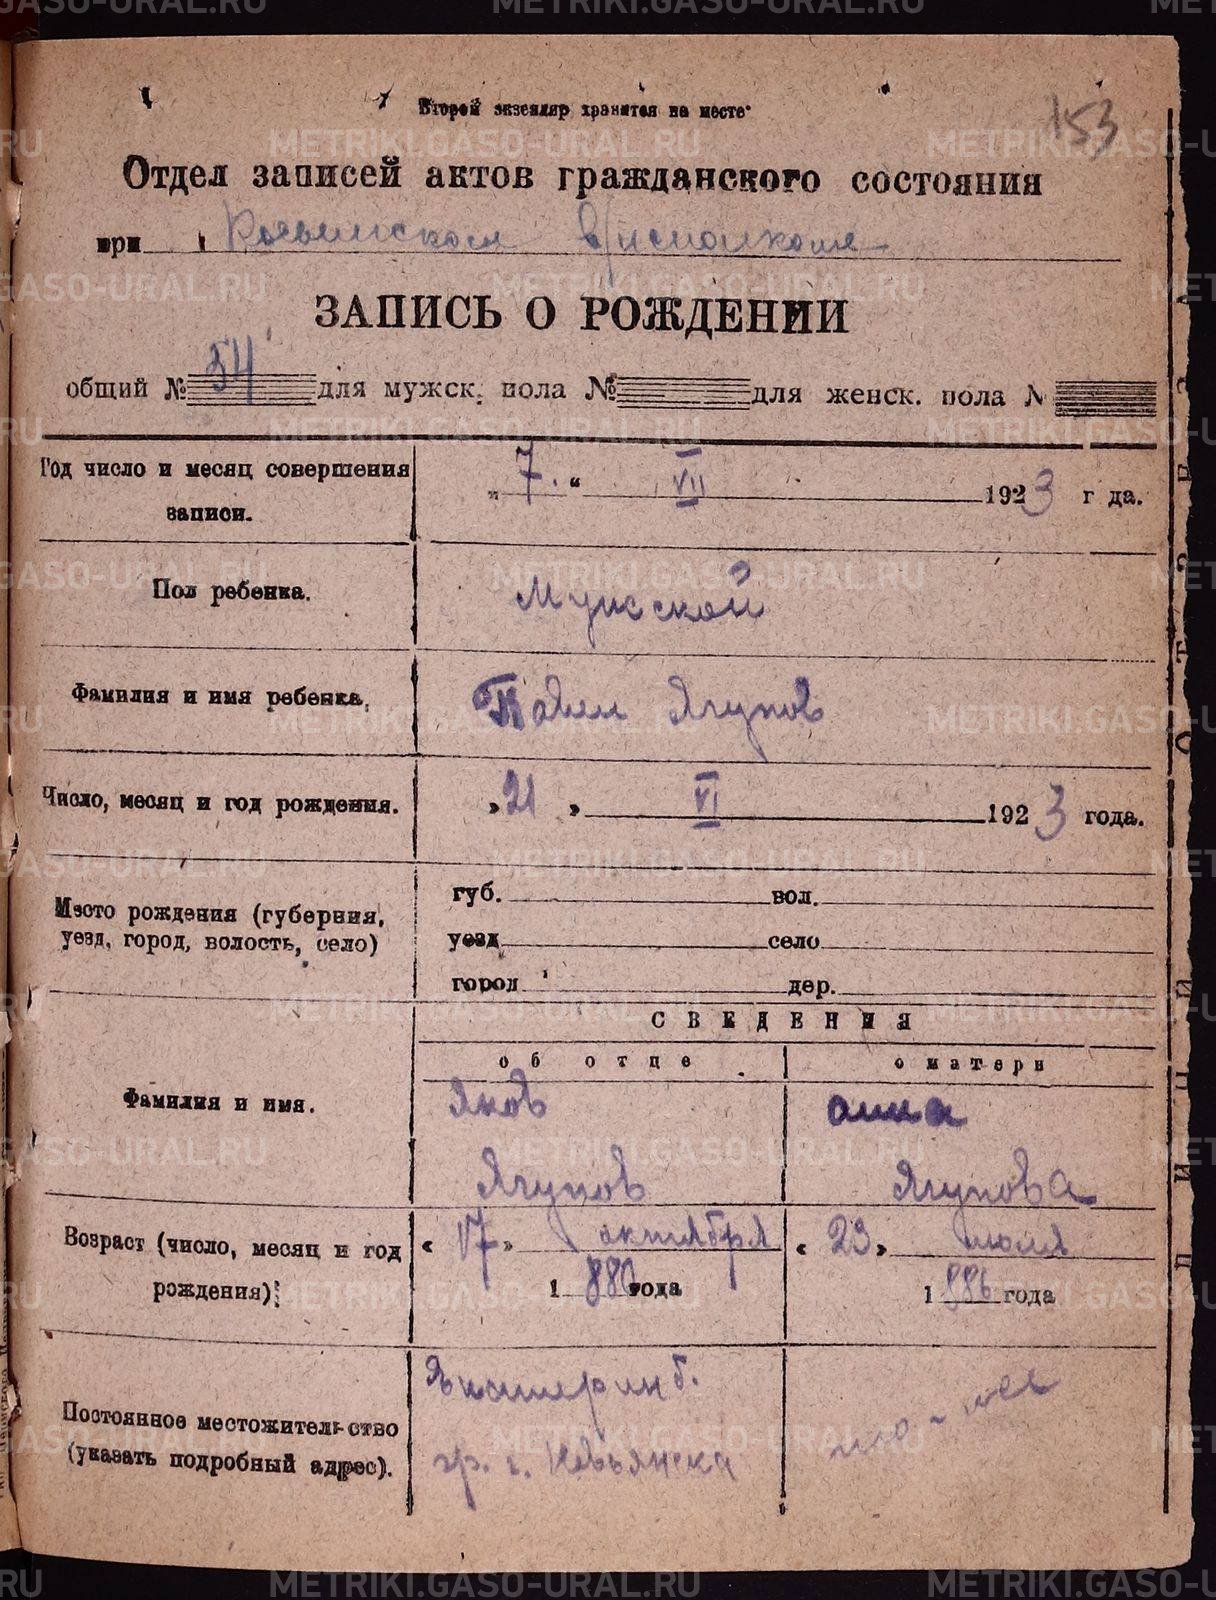 153
Второй экземляр хранится на месте
Отдел записей актов гражданского состояния
при
ЗАПИСЬ О РОЖДЕНИИ
общий № 54 для мужск. пола № для женск. пола №
Год число и месяц совершения записи.
„ 7. “ VII 1923 г да.
Пол ребенка.
Мужской
Фамилия и имя ребенка.
Павел Ягупов
Число, месяц и год рождения.
„ 21 „ VI 1923 года.
Место рождения (губерния,
уезд, город, волость, село)
губ. вол.
уезд село
город дер.
СВЕДЕНИЯ
об отце о матери
Фамилия и имя.
Яков Анна
Ягупов Ягупова
Возраст (число, месяц и год
рождения)
« 17 » октября « 23 » июля
1880 года 1886 года
Постоянное местожительство
(указать подробный адрес).
Екатеринб.
гр. г. Невьянска
METRIKI.GASO-URAL.RU